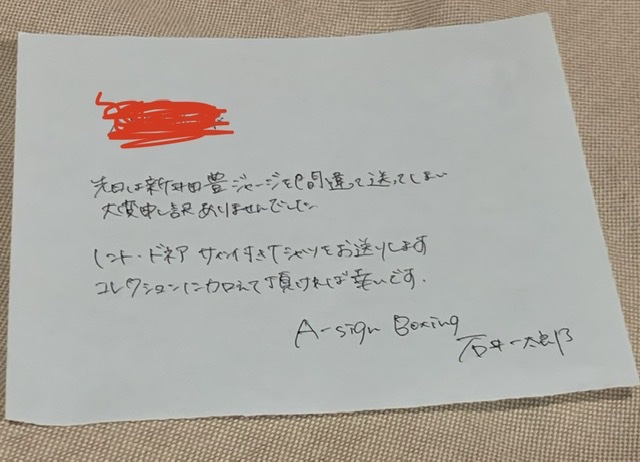 先日は新井田豊ジャージを間違って送ってしまい
大変申し訳ありませんでした
レノト・ドネア サイン付きTシャツをお送りします
コレクションに加えて頂ければ幸いです.
A-sign Boxing
石井一太郎